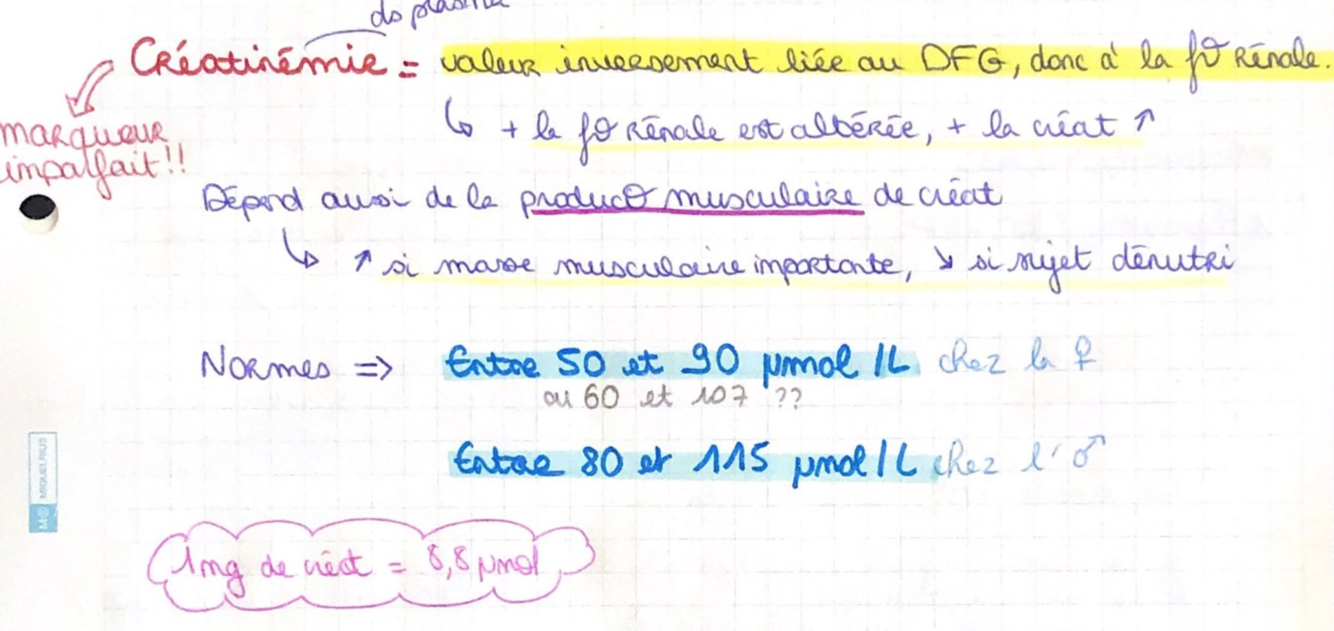 ds plasma
Créatinémie = valeur inversement liée au DFG, donc à la fθ Rénale.
↳ + la fθ Rénale est altérée, + la créat ↑
marqueur
imparfait!!
Dépend aussi de la productθ musculaire de créat
↳ ↑ si masse musculaire importante, ↘ si sujet dénutri
Normes => Entre 50 et 90 µmol/L chez la ♀
ou 60 et 107 ??
Entre 80 et 115 µmol/L chez l'♂
1mg de créat = 8,8 µmol
MIQUELRIUS